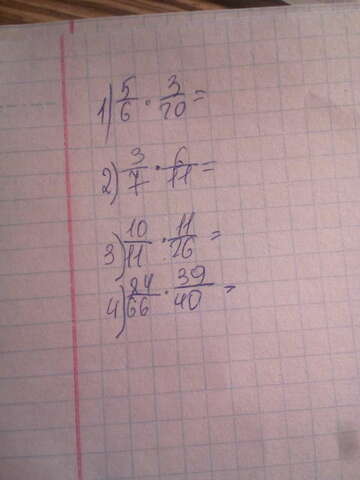 1) 5/6 · 3/20 =
2) 3/7 · 6/11 =
3) 10/11 · 11/26 =
4) 24/66 · 39/40 =